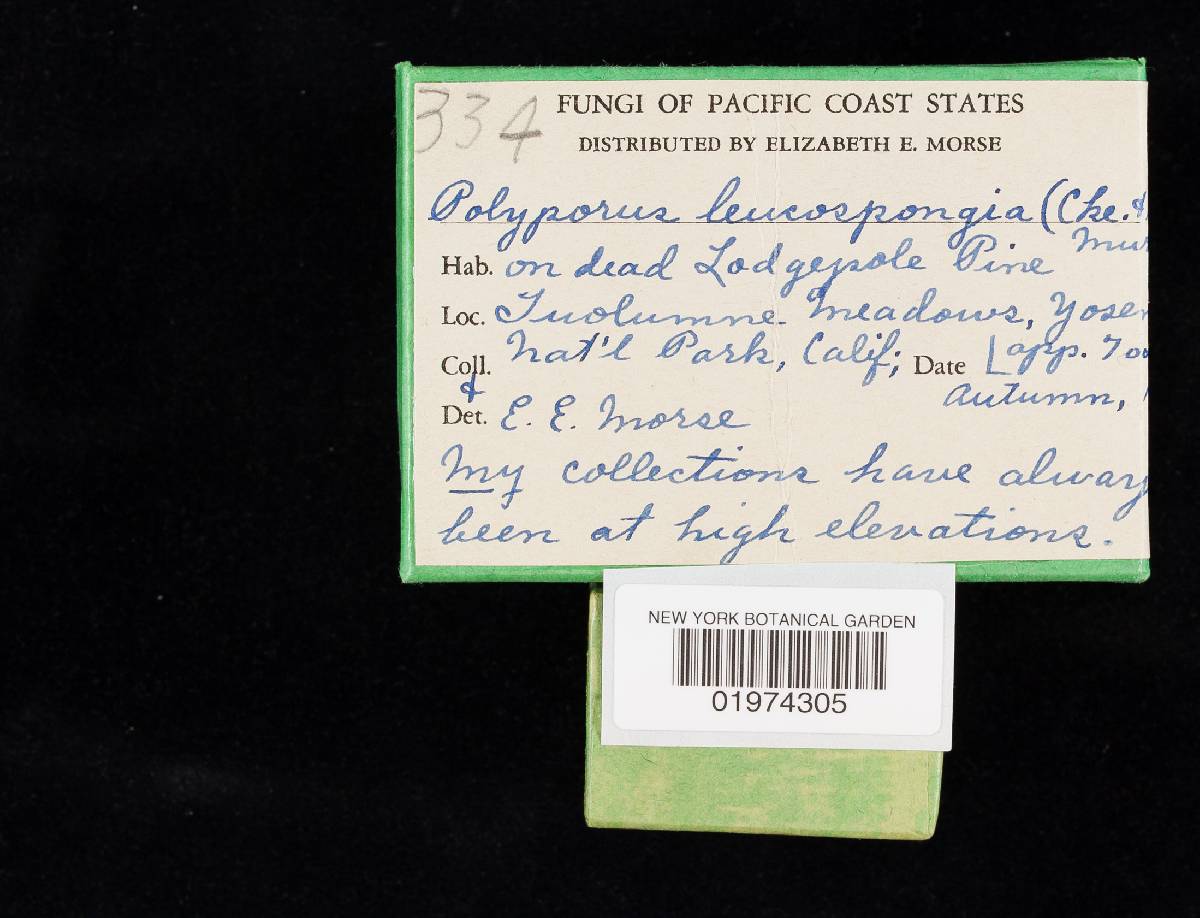 334 FUNGI OF PACIFIC COAST STATES
DISTRIBUTED BY ELIZABETH E. MORSE
Polyporus leucospongia (Cke. &
Mur
Hab. on dead Lodgepole Pine
Loc. Tuolumne Meadows, Yosem
Nat'l Park, Calif; [app. 700
Coll. Date
& Autumn,
Det. E. E. Morse
My collections have always
been at high elevations.
NEW YORK BOTANICAL GARDEN
01974305